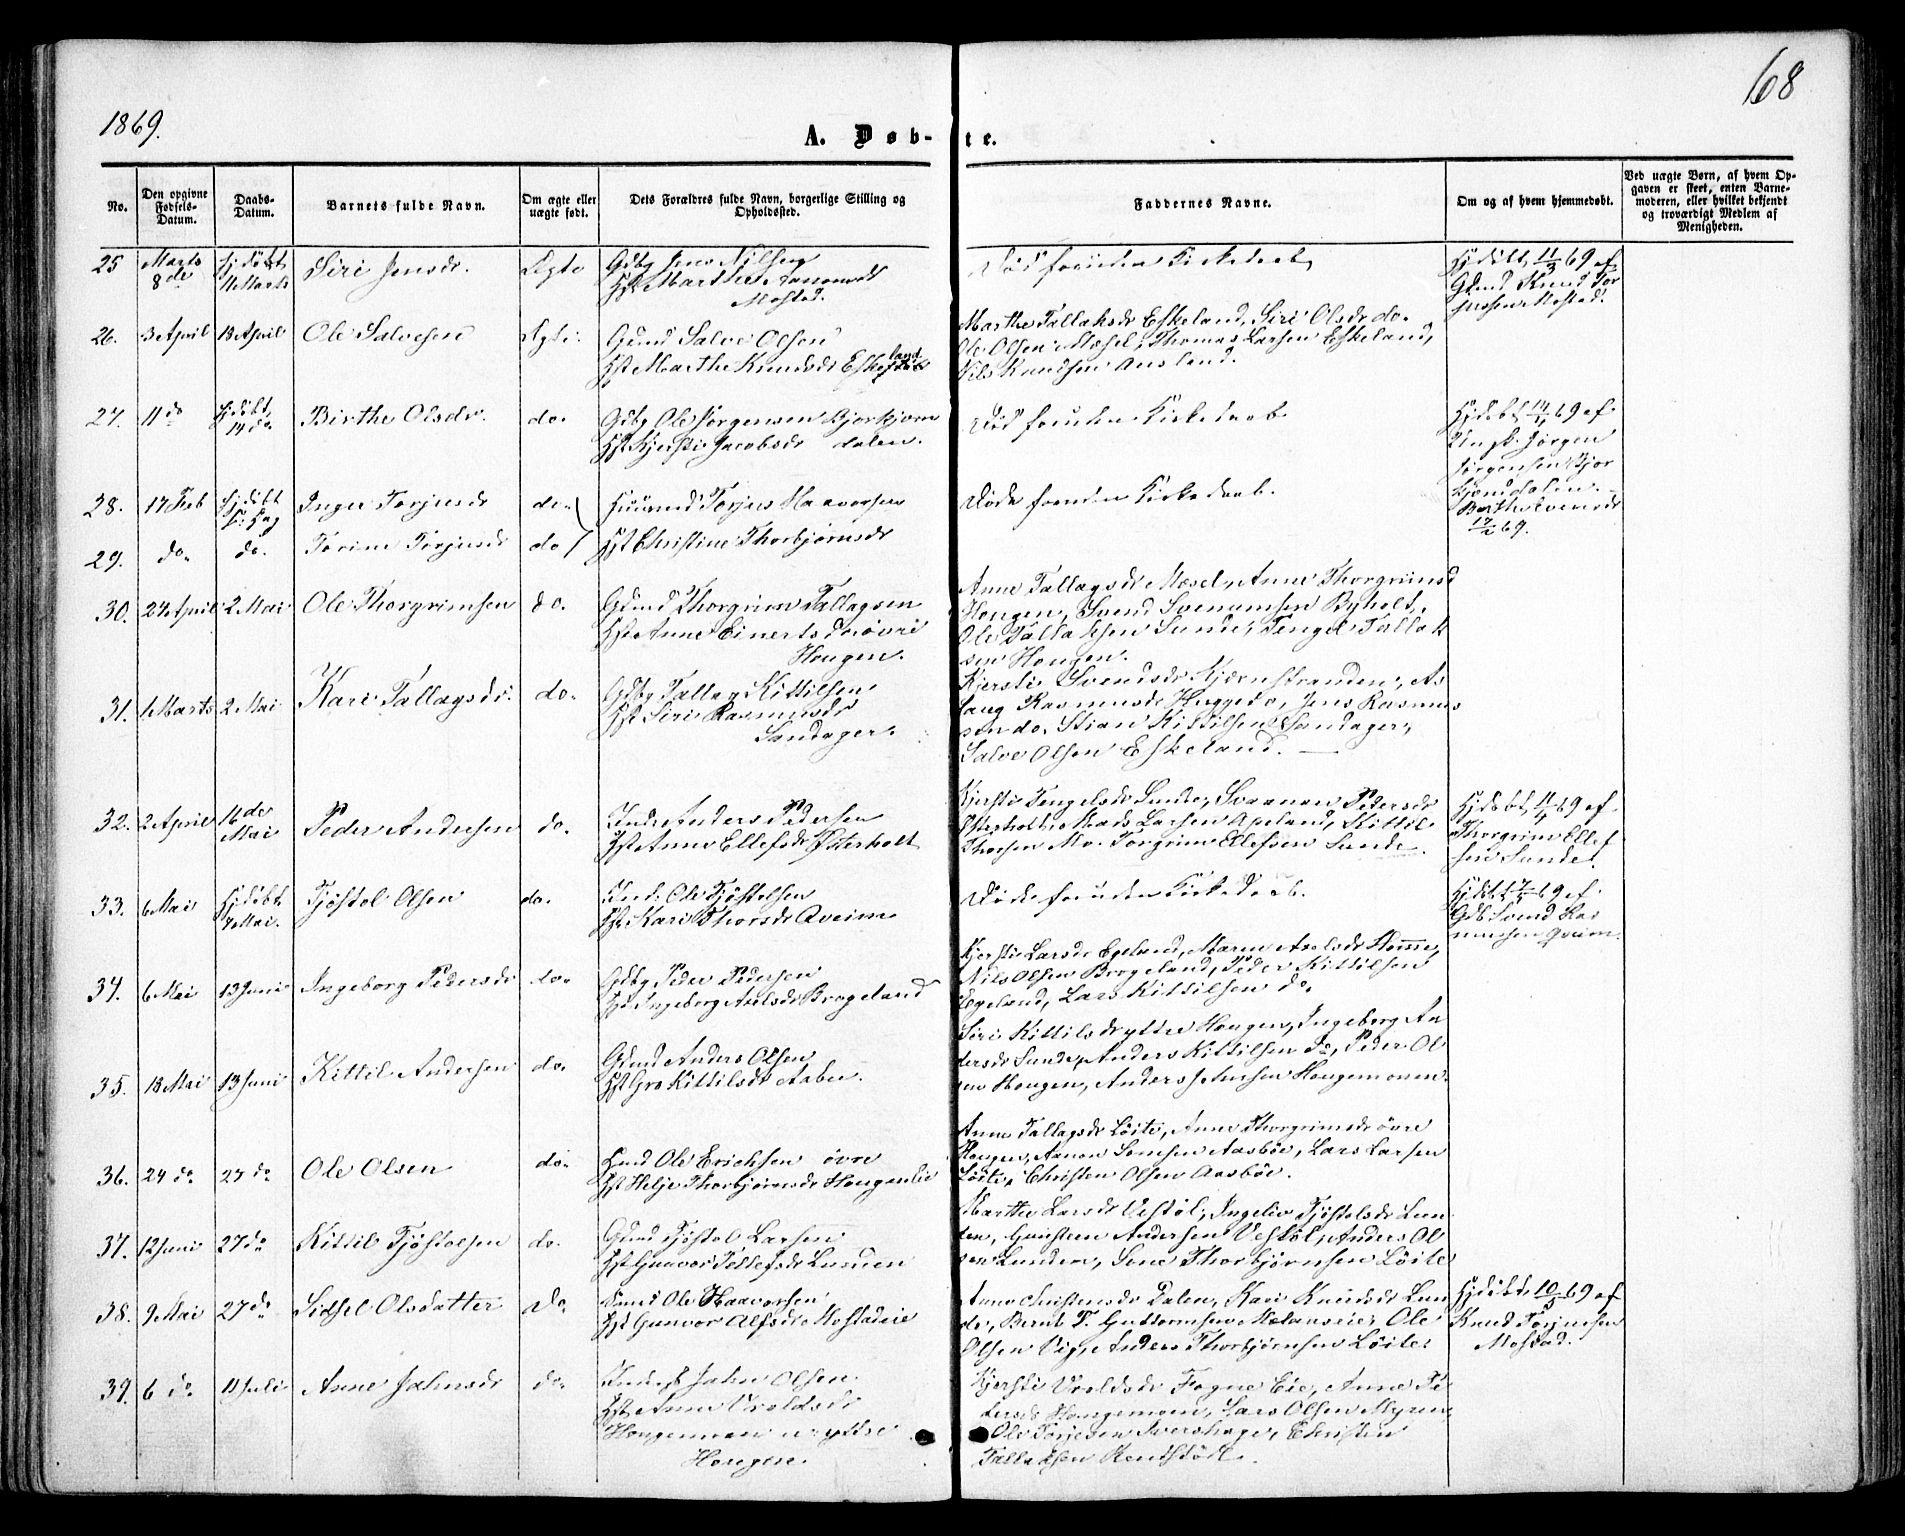 1869.
68
A. Døb-te.
No.
Den opgivne Fødsels-Datum.
Daabs-Datum.
Barnets fulde Navn.
Om ægte eller uægte født.
Dets Forældres fulde Navn, borgerlige Stilling og Opholdssted.
Faddernes Navne.
Om og af hvem hjemmedøbt.
Ved uægte Børn, af hvem Opgaven er skeet, enten Barnemoderen, eller hvilket bekjendt og troværdigt Medlem af Menigheden.
25 Marts 8de Hjdøbt 11 Marts Siri Jensdr. Ægte Gdbg Jens Nilsen
Hst Marthe
Mostad.
Død foruden Kirkedaab
Hjdøbt 11/3 69 af
Gmd Knud Tor
jusen Mostad.
26. 3 April 18 April Ole Salvesen Ægte Gmd Salve Olsen
Hst Marthe Knudsdr Eskeland
Marthe Tallaksdr Eskeland, Siri Olsdr do.
Ole Olsen Mæsel, Thomas Larsen Eskeland,
Nils Knudsen Ausland.
27. 11 do Hjdøbt 14 do. Birthe Olsdr. do. Gdbg Ole Jørgensen Bjorkjern
Hst Kjersti Jacobsdr dalen.
Død foruden Kirkedaab.
Hjdøbt 14/4 69 af
Ungk. Jørgen
Jørgensen Bjor
kjerndalen.
28. 17 Feb Hjdøbt Inger Torjusdr do. Huusmd Torjus Haavorsen
Døde foruden Kirkedaab.
17/2 69.
29. do. do. Torine Torjusdr do Hst Christine Thorbjørnsdr
30. 24 April 2 Mai Ole Thorgrimsen do. Gdmd Thorgrim Tallagsen
Hst Anne Einertsdr øvre
Hougen.
Anne Tallagsdr Mæsel, Anne Thorgrimsd
Hougen, Svend Svenumsen Byholt,
Ole Tallaksen Sunde, Tengel Tallak
sen Hougen.
31. 1 Marts 2 Mai Kari Tallagsdr. do. Gdbg Tallag Kittilsen
Hst Siri Rasmusdr
Sandager.
Kjersti Svendsdr Kjærnstranden, As
laug Rasmusdr Huggedo, Jens Rasmus
sen do. Stian Kittilsen Sandager,
Salve Olsen Eskeland.
32. 2 April 16de Mai Peder Andersen do. Anders Pedersen
Hst Anne Ellefsdr Østerholt
Kjersti Tengelsdr Sunde, Pedersdr
Østerholt, Mads Larsen Apeland, Kittil
Mo. Torgrim Ellefsen Sunde.
Hjdøbt 11/4 69 af
Thorgrim Ellef
sen Sunde.
33. 6 Mai Hjdøbt 7 Mai. Tjøstol Olsen do. Ind. Ole Tjøstolsen
Hst Kari Thorsdr Qveim
Døde foruden Kirkedaab.
Hjdøbt 7/5 69 af
Gdb Svend Ras
mussen Qveim.
34. 6 Mai 13 Juni Ingeborg Pedersdr do. Gdbg Peder Pedersen
Hst Ingeborg Axelsdr Brogeland
Kjersti Larsdr Egeland, Maren Axelsdr Homme,
Nils Olsen Brogeland, Peder Kittilsen
Egeland, Lars Kittilsen do.
35. 18 Mai 13 Juni Kittil Andersen do. Gmd Anders Olsen
Hst Gro Kittilsdr Aabu.
Siri Kittilsdr yttre Hougen, Ingeborg An
dersdr Sunde, Anders Kittilsen do, Peder Ol
sen Hougen, Anders Hougemonen.
36. 24 do 27 do Ole Olsen do. Hmd Ole Erichsen øvre
Hst Helje Thorbjørnsdr Hougenlie
Anne Tallagsdr Løite, Anne Thorgrimsdr øvre
Hougen, Aanon Sømsen Aasbøe, Lars Larsen
Løite, Christen Olsen Aasbøe.
37. 12 Juni 27 do Kittil Tjøstolsen do. Gmd Tjøstol Larsen
Hst Gunvor Tellefsdr Lunden
Marthe Larsdr Vestøl, Ingeliv Tjøstolsdr Lun
den, Gunsteen Andersen Vestøl, Anders Ol
sen Lunden, Sone Thorbjørnsen Løite
38. 9 Mai 27 do Sidsel Olsdatter Do Hmd Ole Haavorsen
Hst Gunvor Alfsdr Mostadeie
Anne Christensdr Dalen, Kari Knudsdr Lun
de, Bernt T. Guttormsen Mælanseie, Ole
Olsen Vig, Anders Thorbjørnsen Løite.
Hjdøbt 10/5 69 af
Knud Torjusen
Mostad.
39. 6 do 11 Juli Anne Jahnsdr do. Inderst Jahn Olsen
Hst Anne Vroldsdr
Hougemoen u. yttre
Hougen.
Kjersti Vroldsdr Fogne Eie, Anne Pe
dersdr Hougemoen, Lars Olsen Myren,
Ole Torjusen Ivershage, Christen
Tallaksen Rendstøl.